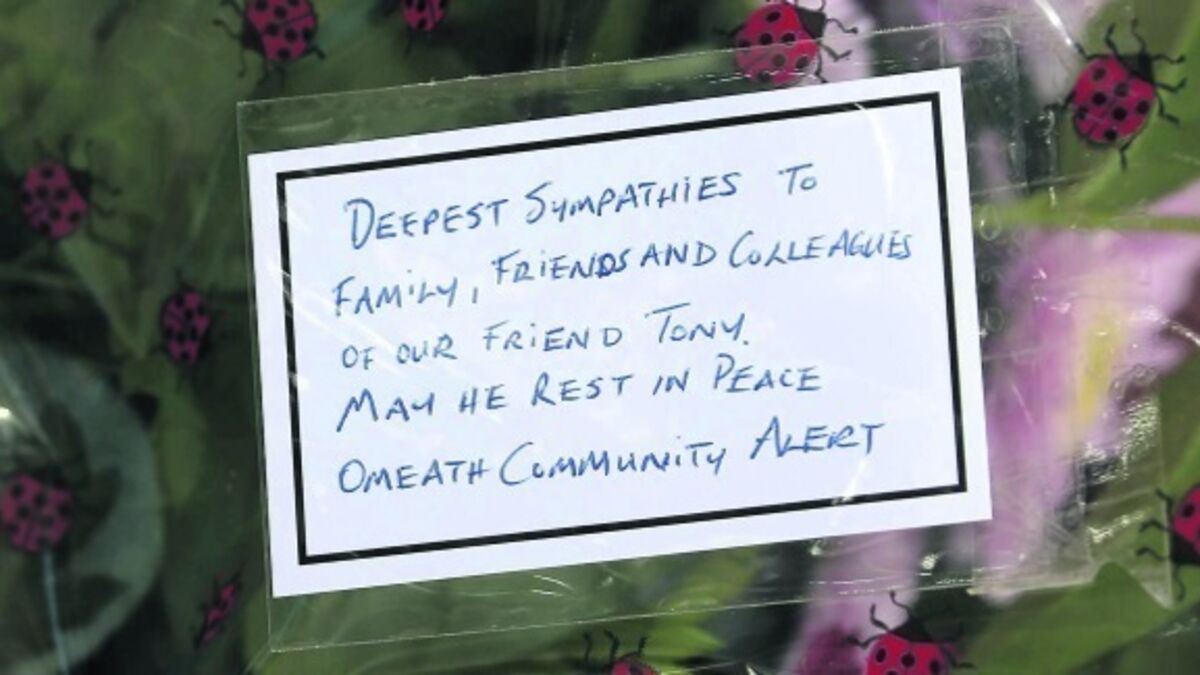 DEEPEST SYMPATHiES To
FAMiLY, FRiENDS AND COLLEAGUES
OF OUR FRiEND TONY.
MAY HE REST IN PEACE
OMEATH COMMUNiTY ALERT